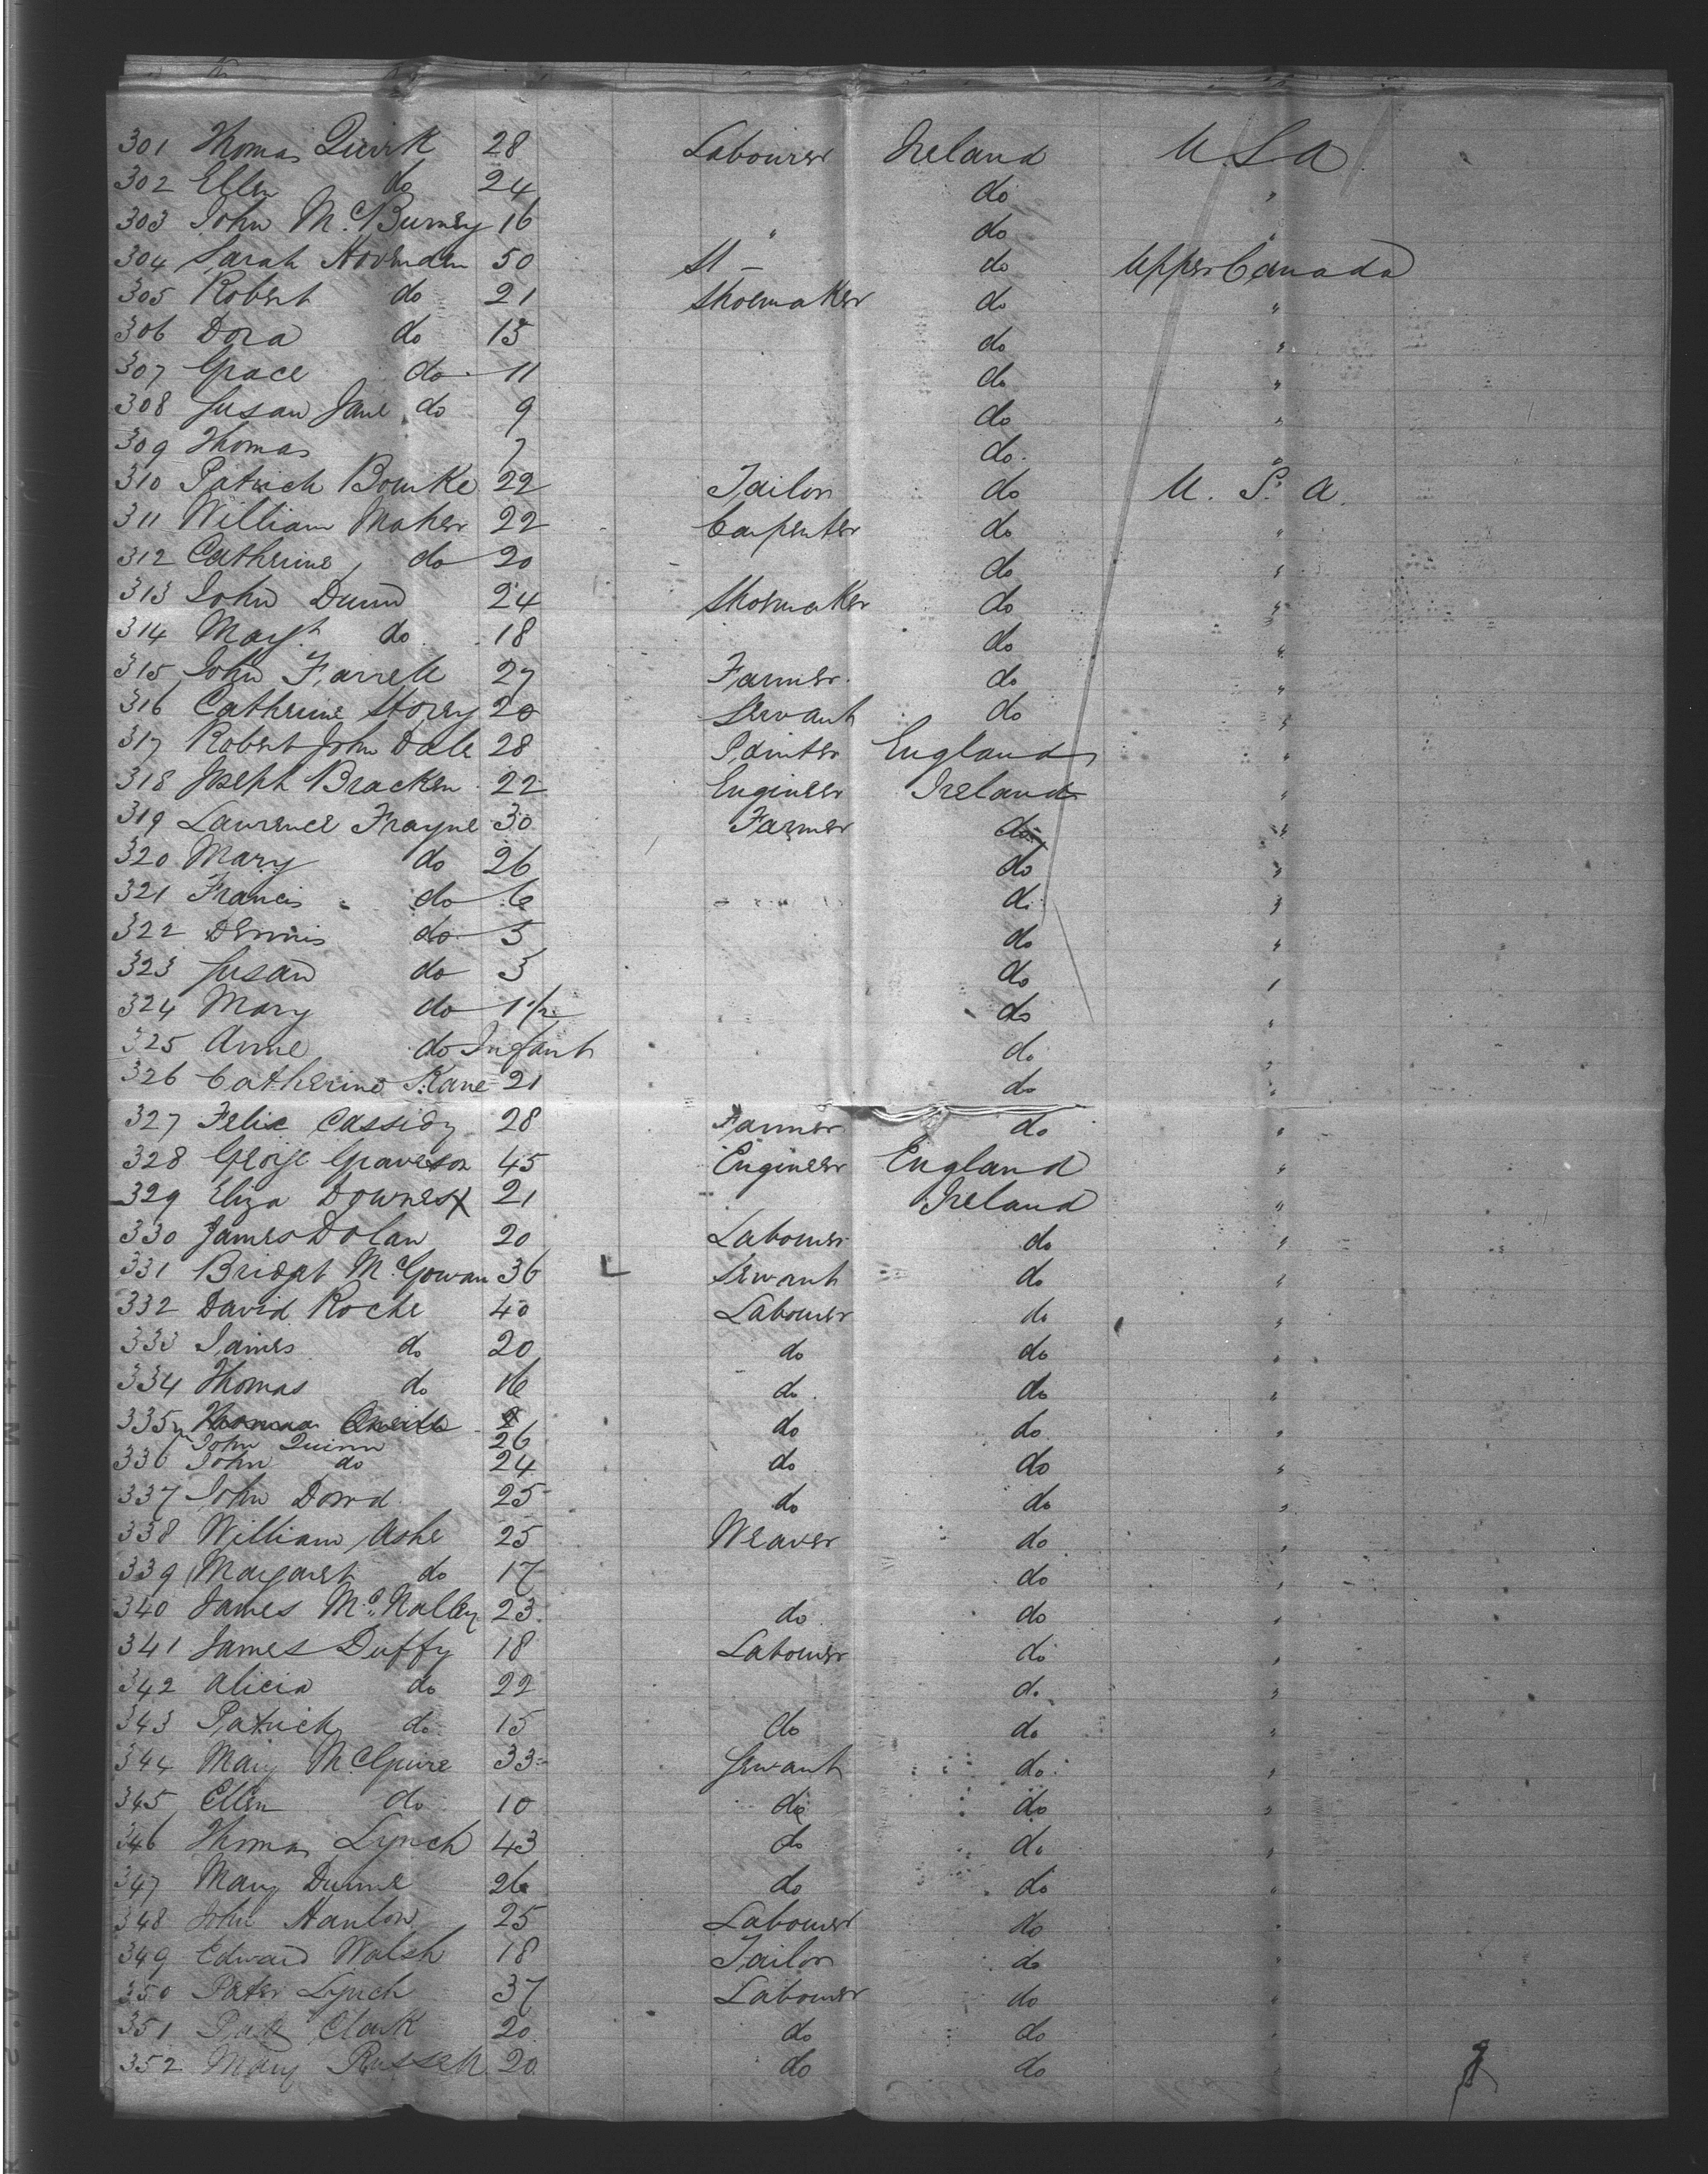 301 Thomas Quirk 28 Labourer Ireland U S A
302 Ellen do 24 do "
303 John McBurney 16 " do "
304 Sarah Hovenden 50 St - do Upper Canada
305 Robert do 21 Shoemaker do "
306 Dora do 15 do "
307 Grace do 11 do "
308 Susan Jane do 9 do "
309 Thomas 7 do "
310 Patrick Bourke 22 Tailor do U. S. A.
311 William Maher 22 Carpenter do "
312 Catherine do 20 do "
313 John Dunn 24 Shoemaker do "
314 Margt do 18 do "
315 John Farrell 27 Farmer do "
316 Catherine Storey 20 Servant do "
317 Robert John Dale 28 Painter England "
318 Joseph Bracken 22 Engineer Ireland "
319 Lawrence Frayne 30 Farmer do "
320 Mary do 26 do "
321 Francis do 6 do "
322 Dennis do 5 do "
323 Susan do 3 do "
324 Mary do 1 1/2 do "
325 Anne do Infant do "
326 Catherine Kane 21 do "
327 Felix Cassidy 28 Farmer do "
328 George Graveson 45 Engineer England "
329 Eliza Downes X 21 Ireland "
330 James Dolan 20 Labourer do "
331 Bridget McGowan 36 Servant do "
332 David Roche 40 Labourer do "
333 James do 20 do do "
334 Thomas do 16 do do "
335 do do "
John Quinn 26
336 John do 24 do do "
337 John Dowd 25 do do "
338 William Ashe 25 Weaver do "
339 Margaret do 17 do "
340 James McNalley 23 do do "
341 James Duffy 18 Labourer do "
342 Alicia do 22 do "
343 Patrick do 15 do do "
344 Mary McGuire 33 Servant do "
345 Ellen do 10 do do "
346 Thomas Lynch 43 do do "
347 Mary Dunne 26 do do "
348 John Hanlon 25 Labourer do "
349 Edward Walsh 18 Tailor do "
350 Peter Lynch 37 Labourer do "
351 Clark 20 do do "
352 Mary Russell 20 do do "